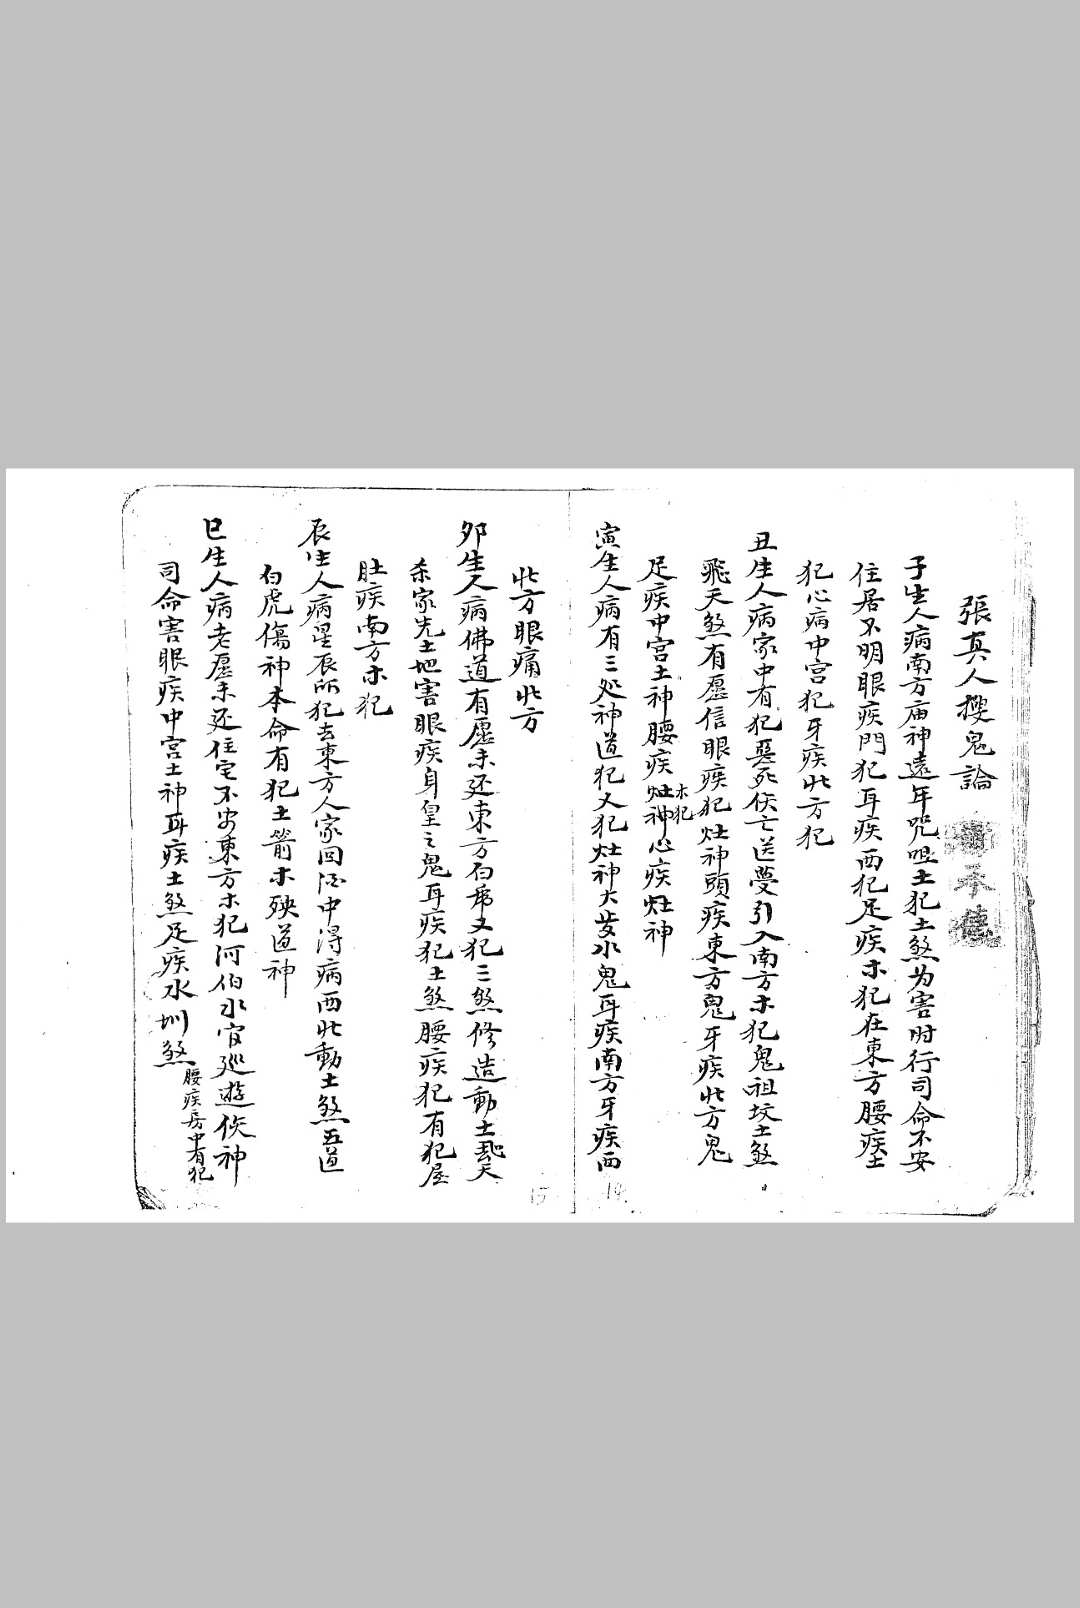 張真人搜鬼論 承德
子生人病南方庙神遠年咒咀土犯土煞为害时行司命不安
住居不明眼疾門犯耳疾西犯足疾木犯在東方腰疾土
犯心病中宫犯牙疾北方犯
丑生人病家中有犯惡死伕亡送夢引入南方木犯鬼祖坟土煞
飛天煞有愿信眼疾犯灶神頭疾東方鬼牙疾北方鬼
足疾中宫土神腰疾灶神木犯心疾灶神
寅生人病有三处神道犯又犯灶神大发水鬼耳疾南方牙疾西
北方眼痛北方
夘生人病佛道有愿未还東方白虎又犯三煞修造動土
天
杀家先土地害眼疾身皇之鬼耳疾犯土煞腰疾犯有犯屋
肚疾南方木犯
辰生人病星辰所犯去東方人家回酒中淂病西北動土煞五道
白虎傷神本命有犯土箭木殃道神
巳生人病老愿未还住宅不安東方木犯河伯水官巡遊伕神
司命害眼疾中宫土神耳疾土煞足疾水圳煞腰疾房中有犯
14
15